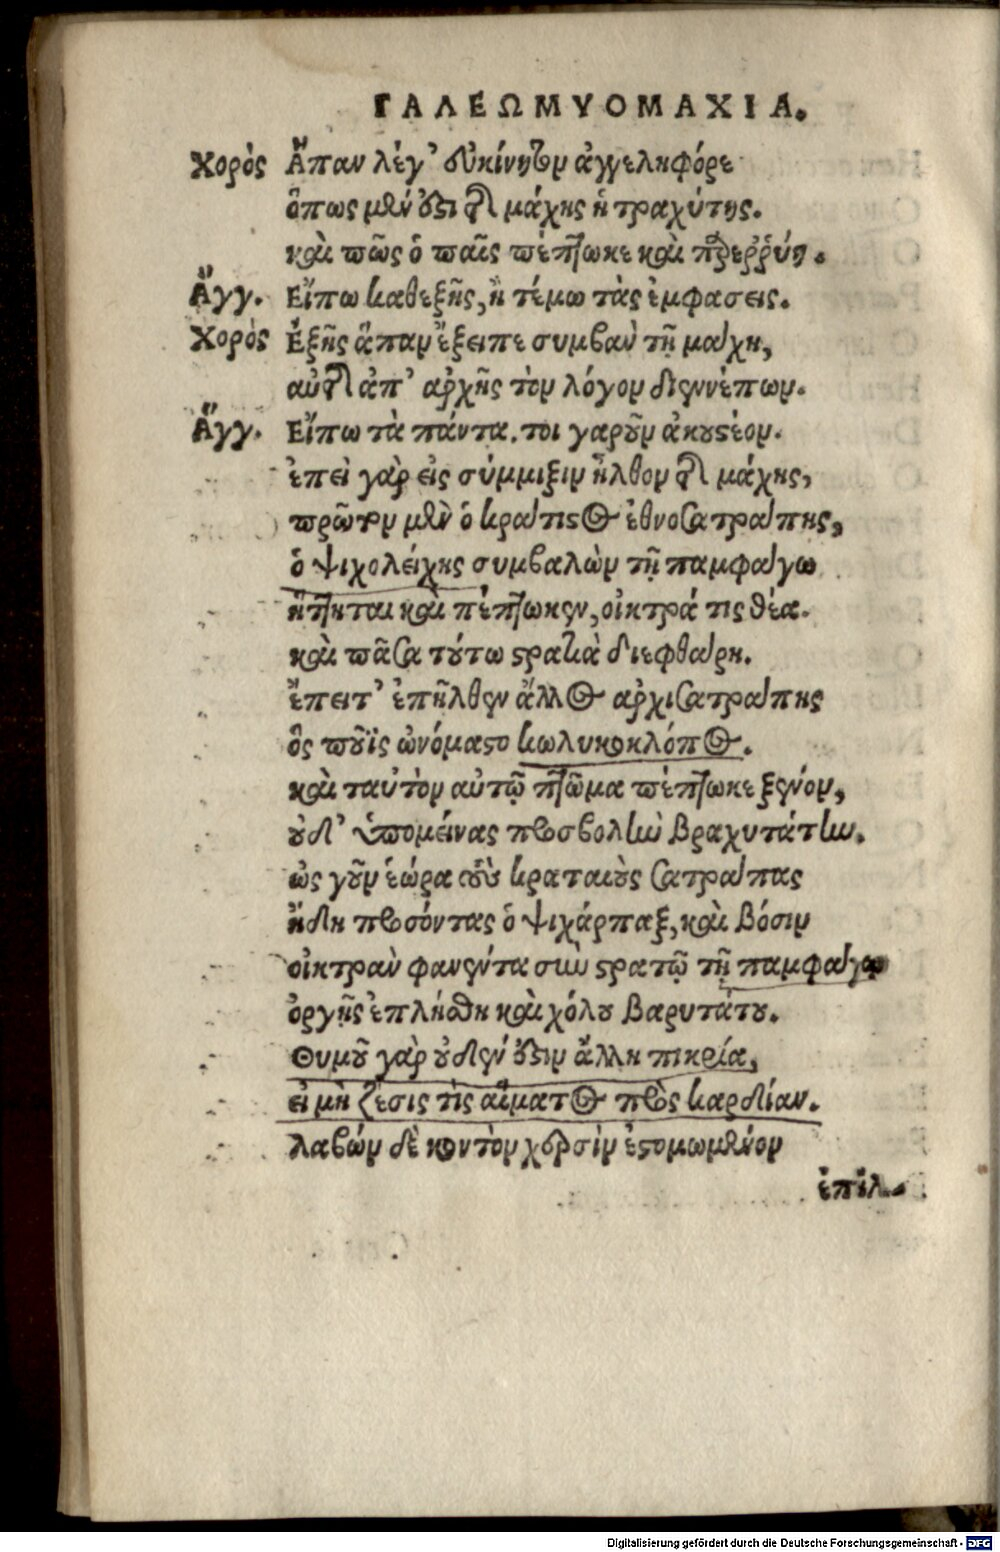 ΓΑΛΕΩΜΥΟΜΑΧΙΑ.
Χορὸς Ἅπαν λέγ' εὐκίνητον ἀγγεληφόρε
ὅπως μὲν ἔστι τῆς μάχης ἡ τραχύτης.
καὶ πῶς ὁ παῖς πέπτωκε καὶ περερρύη.
Ἄγγ. Εἴπω καθεξῆς, ἢ τέμω τὰς ἐμφασεις.
Χορὸς Ἑξῆς ἅπαν ἔξειπε συμβὰν τῇ μάχῃ,
αὐτῆς ἀπ' ἀρχῆς τὸν λόγον διεννέπων.
Ἄγγ. Εἴπω τὰ πάντα. τοι γαροῦν ἀκουστέον.
ἐπεὶ γὰρ εἰς σύμμιξιν ἦλθον τῆς μάχης,
πρῶτον μὲν ὁ κράτιστος ἐθνοσατράπης,
ὁ ψιχολείχης συμβαλὼν τῇ παμφάγῳ
ἥττηται καὶ πέπτωκεν, οἰκτρά τις θέα.
καὶ πᾶσα τούτω στρατιὰ διεφθάρη.
ἔπειτ' ἐπῆλθεν ἄλλος ἀρχισατράπης
ὃς τοὔϊς ὠνόμαστο κωλυκοκλόπος.
καὶ ταὐτὸν αὐτῷ πτῶμα πέπτωκε ξένον,
οὐδ' ὑπομείνας προσβολὴν βραχυτάτην.
ὡς γοῦν ἑώρα τοὺς κραταιοὺς σατράπας
ἤδη προσόντας ὁ ψιχάρπαξ, καὶ βόσιν
οἰκτρὰν φανέντα σὺν στρατῷ τῇ παμφάγῳ
ὀργῆς ἐπλήσθη καὶ χόλου βαρυτάτου.
Θυμοῦ γὰρ οὐδὲν ἔστιν ἄλλη πικρία,
εἰ μὴ ζέσις τὶς αἵματος πρὸς καρδίαν.
λαβὼν δὲ κοντὸν χερσὶν ἐστομωμένον
ἐπιλ-
Digitalisierung gefördert durch die Deutsche Forschungsgemeinschaft - DFG